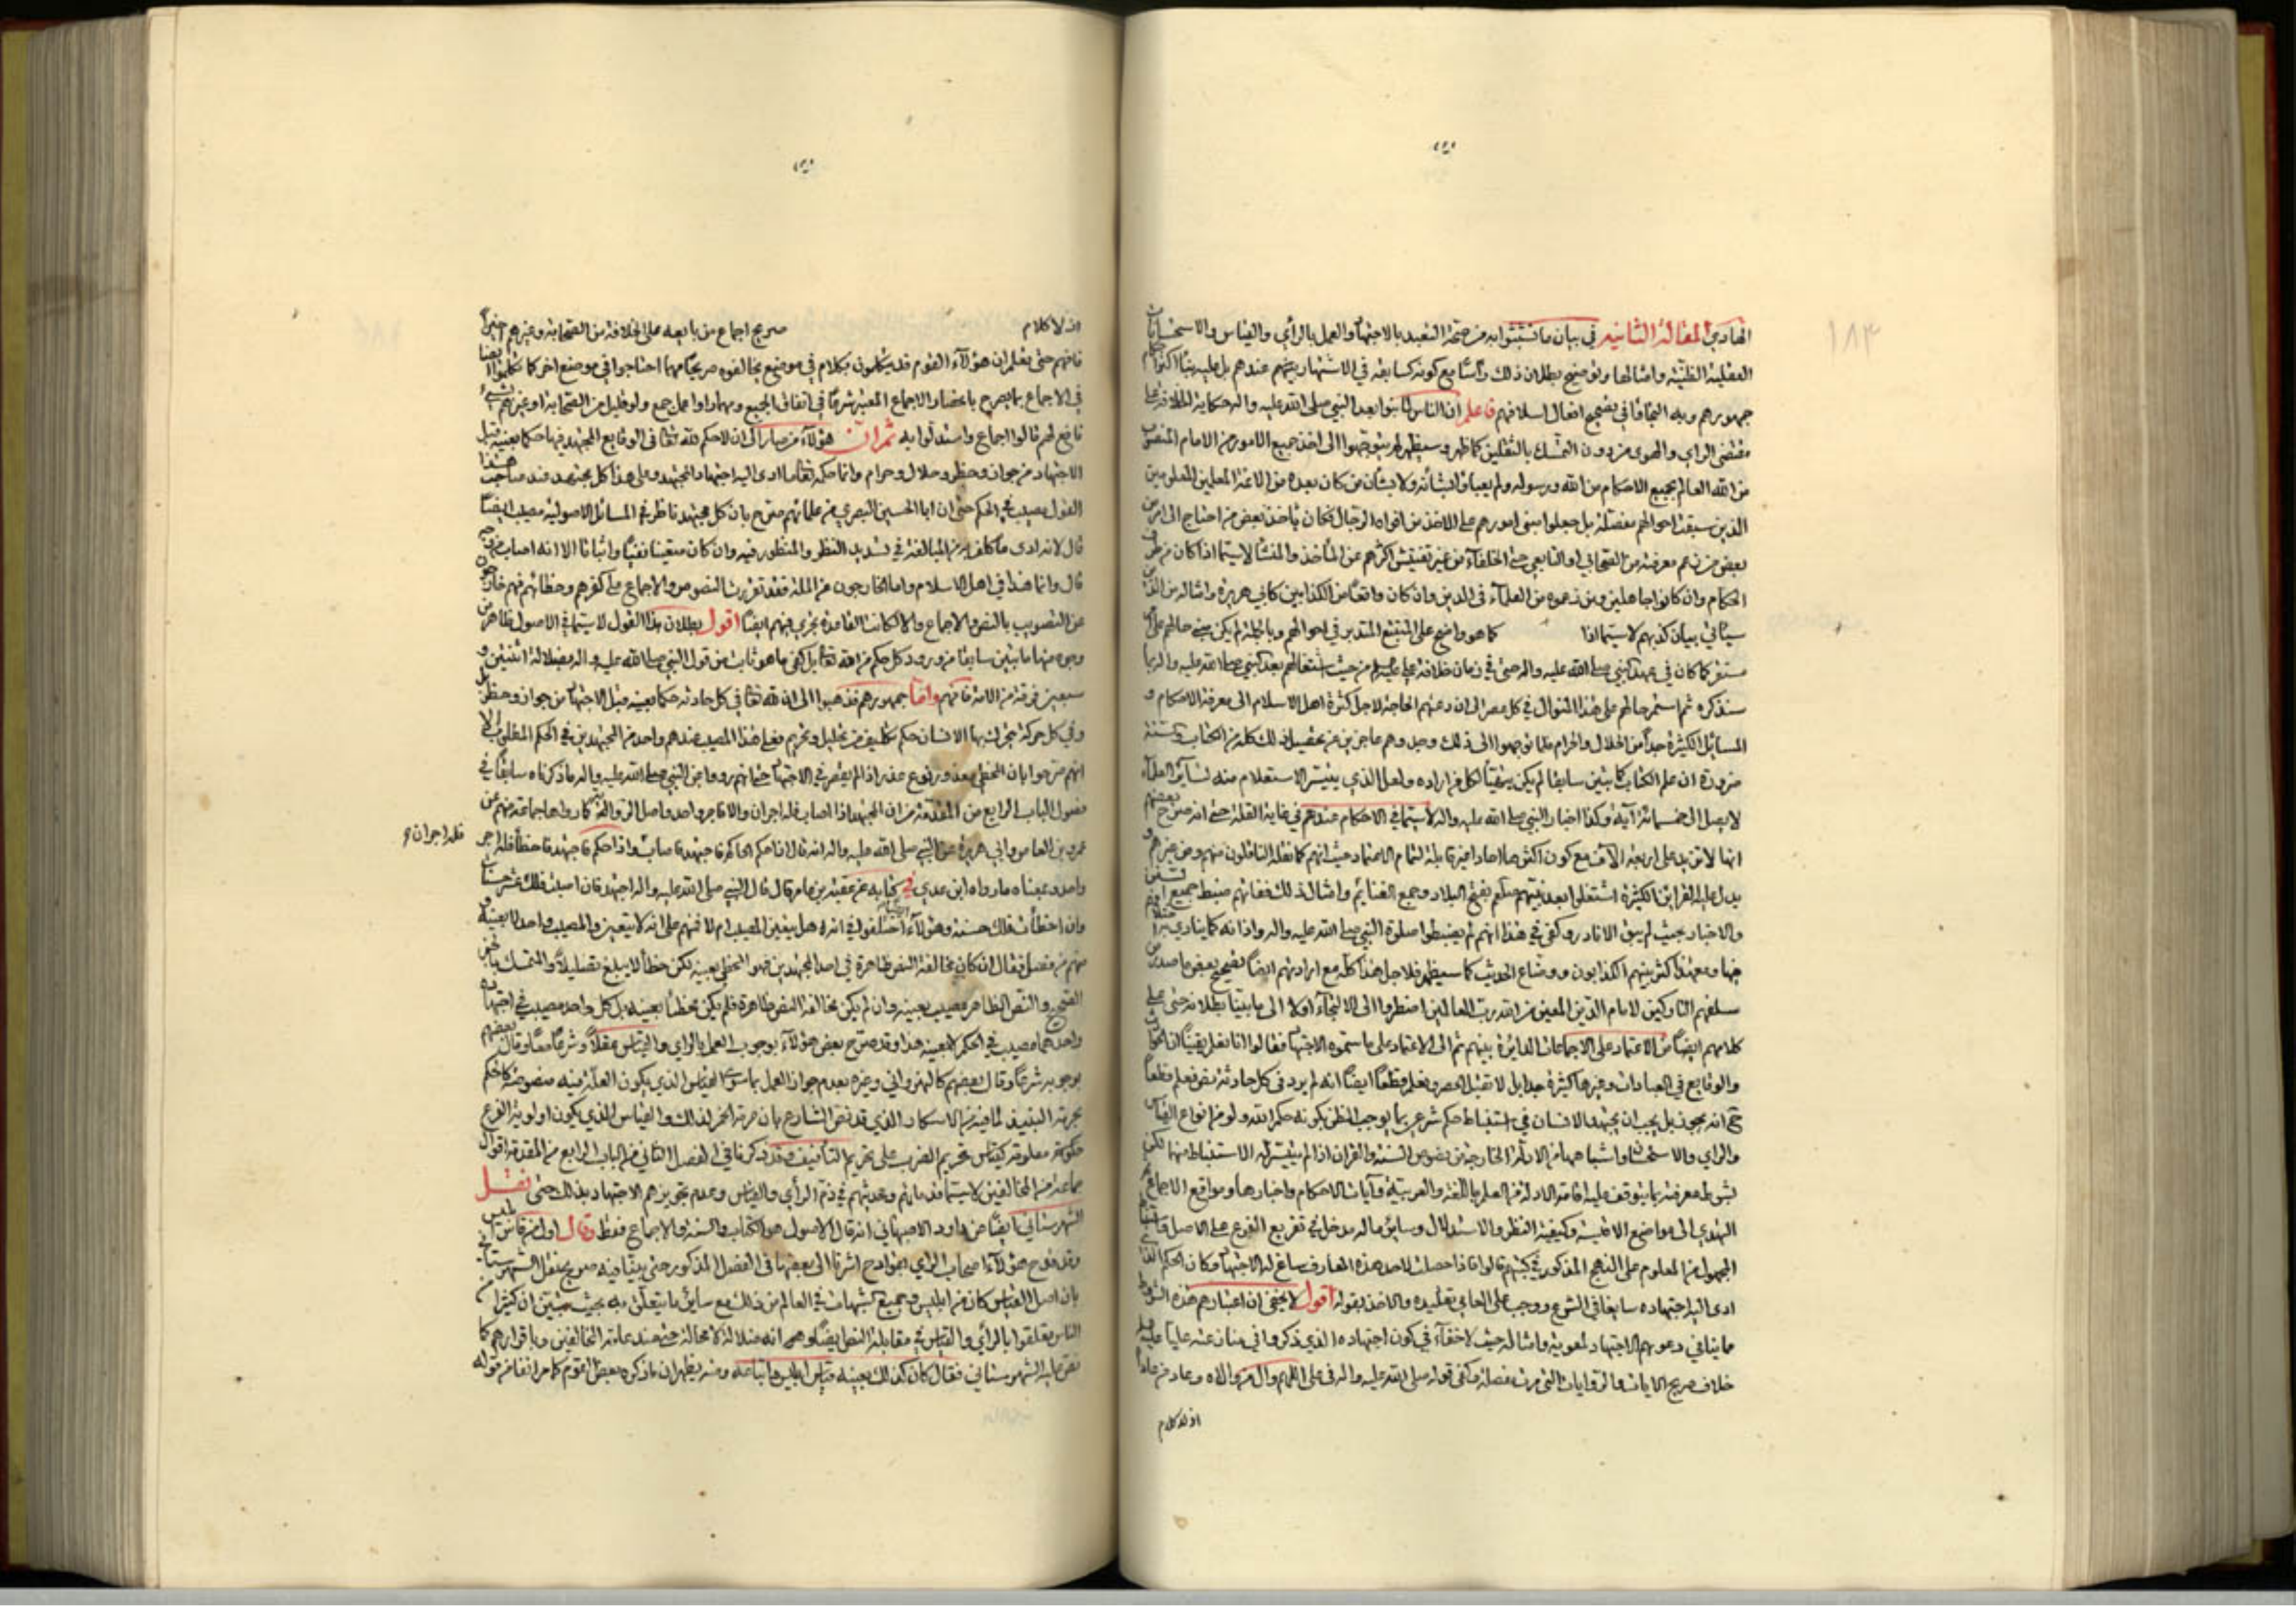 ١٨٣
الهادي المقالة الثانية في بيان ما تشبثوا به من صحة التعبد بالاجتهاد والعمل بالرأي والقياس والاستحسانات
العقلية الظنية وامثالها وتوضيح بطلان ذلك رأسا مع كونه كسابقه في الاشتهار بينهم عندهم بل عليه بناء اكثر احكام
جمهورهم وبه التجاؤا في تصحيح افعال اسلافهم فاعلم ان الناس لما بنوا بعد النبي صلى الله عليه واله حكاية الخلافة على
مقتضى الراي والهوى من دون التمسك بالثقلين كما ظهر وسيظهر لم يتوجهوا الى اخذ جميع الامور من الامام المنصوب
من الله العالم بجميع الاحكام من الله ورسوله ولم يعبأوا بشأنه ولا بشأن من كان بعده من الائمة المعلمين المعلومين
الذين سبقت احوالهم مفصلة بل جعلوا مبنى امورهم على الاخذ من افواه الرجال فكان ياخذ بعض من احتاج الى امر من
بعض من زعم معرفته من الصحابي او التابعي حتى الخلفاء من غير تفتيش اكثرهم عن المأخذ والمنشأ لا سيما اذا كان من طرف
الحكام وان كانوا جاهلين ومن زعموه من العلماء في الدين وان كان واقعا من الكذابين كابي هريرة وامثاله من الذين
سيأتي بيان كذبهم لا سيما اذا كما هو واضح على المتتبع المتدبر في احوالهم وبالجملة لم يكن حينئذ حالهم على
مستقر كما كان في عهد النبي صلى الله عليه واله حتى في زمان خلافة علي عليه السلام من حيث اشتغالهم بعد النبي صلى الله عليه واله بما
سنذكره ثم استمر حالهم على هذا المنوال في كل عصر الى ان دعتهم الحاجة لاجل كثرة اهل الاسلام الى معرفة الاحكام و
المسائل الكثيرة جدا من الحلال والحرام فلما توجهوا الى ذلك وجدوهم عاجزين عن تحصيل ذلك كله من الكتاب والسنة
ضرورة ان علم الكتاب كما تبين سابقا لم يكن يتهيأ لكل من اراده ولعل الذي يتيسر الاستعلام منه لسائر العلماء
لا يصل الى خمسمائة آية وكذا اخبار النبي صلى الله عليه واله لا سيما في الاحكام عندهم في غاية القلة حتى انه صرح بعضهم
انها لا تزيد على اربعة الآف مع كون اكثرها احادا غير قابلة لتمام الاعتماد حيث انهم كما نقله الناقلون منهم ومن غيرهم و
يدل عليه القرائن الكثيرة اشتغلوا بعد نبيهم صلعم بفتح البلاد وجمع الغنائم وامثال ذلك ففاتهم ضبط جميع السنن
والاخبار بحيث لم يبق الا نادر وكفى في هذا انهم لم يضبطوا صلوة النبي صلى الله عليه واله واذانه كما ينادي به اختلافهم
فيها ومع هذا كثر بينهم الكذابون ووضاع الحديث كما سيظهر فلاجل هذا كله مع ارادتهم ايضا تصحيح بعض ما صدر من
سلفهم التاركين لامام الدين المعين من الله رب العالمين اضطروا الى الالتجاء اولا الى ما بينا بطلانه حتى على
كلامهم ايضا من الاعتماد على الاجماعات الدايرة بينهم ثم الى الاعتماد على ما سموه الاجتهاد فقالوا انا نعلم يقينا ان الحوادث
والوقايع في العبادات وغيرها كثيرة جدا بل لا تقبل الحصر ونعلم قطعا ايضا انه لم يرد في كل حادثة نص فعلم قطعا
انه يجوز بل يجب ان يجتهد الانسان في استنباط حكم شرعي بما يوجب الظن بكونه حكم الله ولو من انواع القياس
والراي والاستحسان واشباهها من الادلة الخارجة من نصوص السنة والقرآن اذا لم يتيسر له الاستنباط منها لكن
بشرط معرفته بما يتوقف عليه اقامة الادلة من العلم باللغة والعربية وآيات الاحكام واخبارها ومواقع الاجماع ثم
التهدي الى مواضع الاقيسة وكيفية النظر والاستدلال وساير ما له مدخل في تفريع الفرع على الاصل
المجهول من المعلوم على النهج المذكور في كتبهم قالوا فاذا حصلت لاحد هذه المعارف ساغ له الاجتهاد وكان الحكم الذي
ادى اليه اجتهاده سايغا في الشرع ووجب على العامي تقليده والاخذ بقوله اقول لا يخفى ان اعتبارهم هذه الشروط
ما ينافي دعواهم الاجتهاد لمعوية وامثاله حيث لا خفاء في كون اجتهاده الذي ذكروا في منازعته عليا عليه السلام
خلاف صريح الايات والروايات التي مرت مفصلة وكفى قوله صلى الله عليه واله في علي اللهم وال من والاه وعاد من عاداه
اذ لا كلام
اذ لا كلام صريح اجماع من بايعه على الخلافة من الصحابة وغيرهم حينئذ
فافهم حتى تعلم ان هؤلاء القوم قد يتكلمون بكلام في موضع يخالفوه صريحا مهما احتاجوا في موضع اخر كما تكلموا ايضا
في الاجماع بما يصرح باعتبار الاجماع المعتبر شرعا في اتفاق الجميع ومهما راوا عمل جمع ولو قليل من الصحابة او غيرهم بشيء
نافع لهم قالوا اجماع واستدلوا به ثم ان هؤلاء من صار الى ان لا حكم لله تعالى في الوقايع المجتهد فيها حكما بعينه قبل
الاجتهاد من جواز وحظر وحلال وحرام وانما حكمه تعالى ما ادى اليه اجتهاد المجتهد وعلى هذا كل مجتهد عند صاحب هذا
القول مصيب في الحكم حتى ان ابا الحسين البصري من علمائهم صرح بان كل مجتهد ناظر في المسائل الاصولية مصيب ايضا
قال لانه ادى ما كلف به من المبالغة في تسديد النظر والمنظور فيه وان كان متعينا نفيا واثباتا الا انه اصاب من وجه
قال وانما هذا في اهل الاسلام واما الخارجون عن الملة فقد تقررت النصوص والاجماع على كفرهم وخطائهم فهم خارجون
عن التصويب بالنص والاجماع والا لكانت القاعدة تجري فيهم ايضا اقول بطلان هذا القول لا سيما في الاصول ظاهر من
وجوه منها ما تبين سابقا من ورود كل حكم من الله تعالى بل كفى ما هو ثابت من قول النبي صلى الله عليه واله بضلالة اثنتين و
سبعين فرقة من الامة فافهم واما جمهورهم فذهبوا الى ان لله تعالى في كل حادثة حكما بعينه قبل الاجتهاد من جواز وحظر بل
وفي كل حركة يتحرك بها الانسان حكم تكليف من تحليل وتحريم فعلى هذا المصيب عندهم واحد من المجتهدين في الحكم المطلوب الا
انهم صرحوا بان المخطئ معذور بنوع عذر اذا لم يقصر في الاجتهاد حتى انهم رووا عن النبي صلى الله عليه واله ما ذكرناه سابقا في
فصول الباب الرابع من المقدمة من ان المجتهد اذا اصاب فله اجران والا فاجر واحد واصل الرواية كما رواها جماعة منهم عن
عمرو بن العاص وابي هريرة عن النبي صلى الله عليه واله انه قال اذا حكم الحاكم فاجتهد فاصاب واذا حكم فاجتهد فاخطأ فله اجر
فله اجران و
واحد وبمعناه ما رواه ابن عدي في كتابه عن عقبة بن عامر قال قال النبي صلى الله عليه واله اجتهد فان اصبت فلك عشر حسنات
وان اخطأت فلك حسنة وهؤلاء اختلفوا في انه هل يتعين المصيب ام لا فمنهم على انه لا يتعين والمصيب واحد لا بعينه و
منهم من فصل فقال ان كان مخالفة النص ظاهرة في احد المجتهدين فهو المخطئ بعينه لكن خطأ لا يبلغ تضليلا والمتمسك بالخبر
الصحيح والنص الظاهر مصيب بعينه وان لم يكن مخالفة النص ظاهرة فلم يكن مخطئا بعينه بل كل واحد مصيب في اجتهاده
واحدهما مصيب في الحكم لا بعينه هذا وقد صرح بعض هؤلاء بوجوب العمل بالراي والقياس عقلا وشرعا معا وقال بعضهم
بوجوبه شرعا وقال بعضهم كالنهرواني وغيره بعدم جواز العمل بما سوى القياس الذي يكون العلة فيه منصوصة كالحكم
بحرمة النبيذ لما فيه من الاسكار الذي قد نص الشارع بان حرمة الخمر لذلك والقياس الذي يكون اولوية الفرع
حكومة معلومة كقياس تحريم الضرب على تحريم التأفيف وقد ذكرنا في الفصل الثاني من الباب الرابع من المقدمة اقوال
جماعة من المخالفين لا سيما قدمائهم ومحدثيهم في ذم الرأي والقياس وعدم تجويزهم الاجتهاد بذلك حتى نقل
الشهرستاني ايضا عن داود الاصبهاني انه قال الاصول هو الكتاب والسنة والاجماع فقط وقال اول من قاس ابليس
وقد قدح هؤلاء اصحاب الراي بقوادح اشرنا الى بعضها في الفصل المذكور حتى بينا فيه صريح نقل الشهرستاني
بان اصل القياس كان من ابليس وجميع الشبهات في العالم من ذلك مع ساير ما يتعلق به بحيث تبين ان كثيرا من
الناس تعلقوا بالرأي والقياس في مقابلة النص ايضا وهم انه ضلالة لا محالة حتى عند عامة المخالفين وباقرارهم كما
نص عليه الشهرستاني فقال كان كذلك بعينه قياس ابليس واتباعه ومنه يظهر ان ما ذكره بعض القوم كما مر انفا من قوله